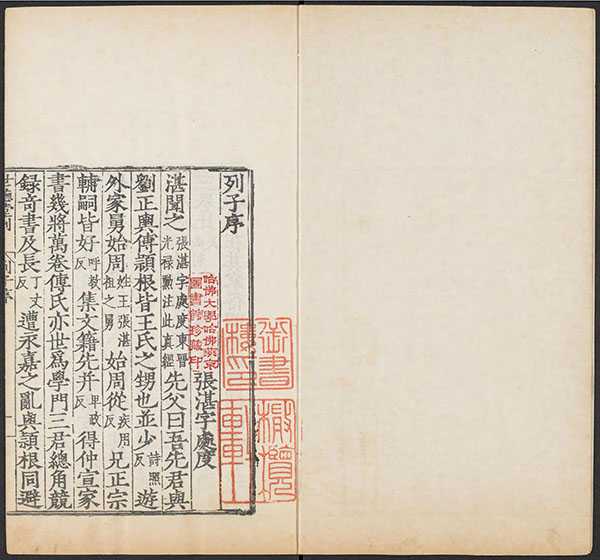 列子序
張湛字處度
湛聞之張湛字處度東晉光禄勳注此真經先父曰吾先君與
劉正輿傅頴根皆王氏之甥也並少詩照反遊
外家舅始周姓王張湛祖之舅始周從疾用反兄正宗
輔嗣皆好呼教反集文籍先并畀政反得仲宣家
書幾將萬卷傅氏亦世爲學門三君總角競
録奇書及長丁丈反遭永嘉之亂與頴根同避
哈佛大學哈佛燕京
圖書館珍藏印
御書